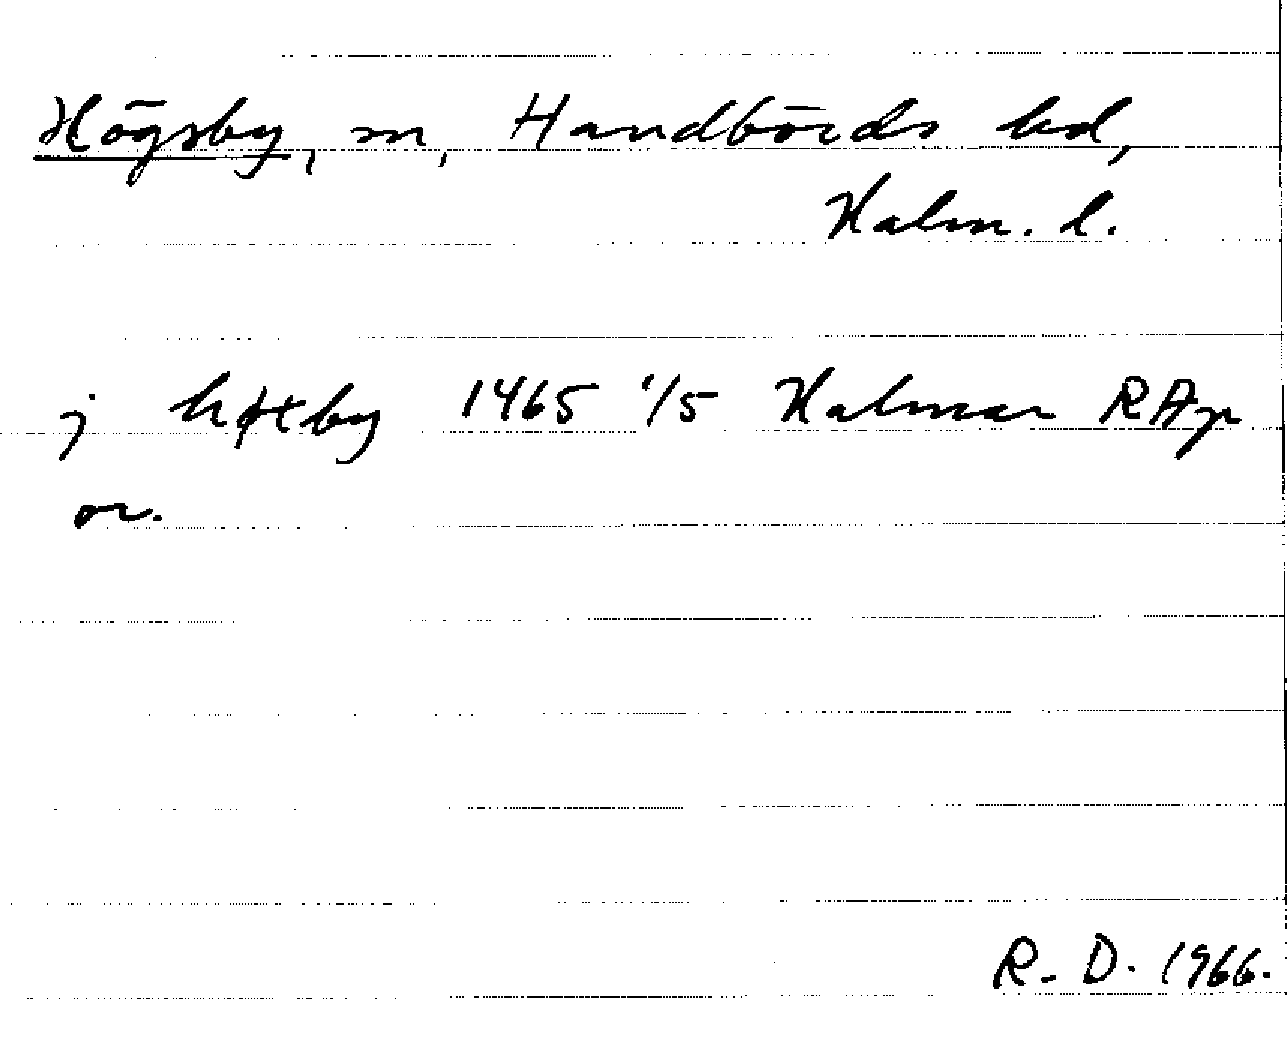 Högsby, sn, Handbörds hd,
Kalm. l.
j høxby 1465 1/5 Kalmar RAp
or.
R. D. 1966.